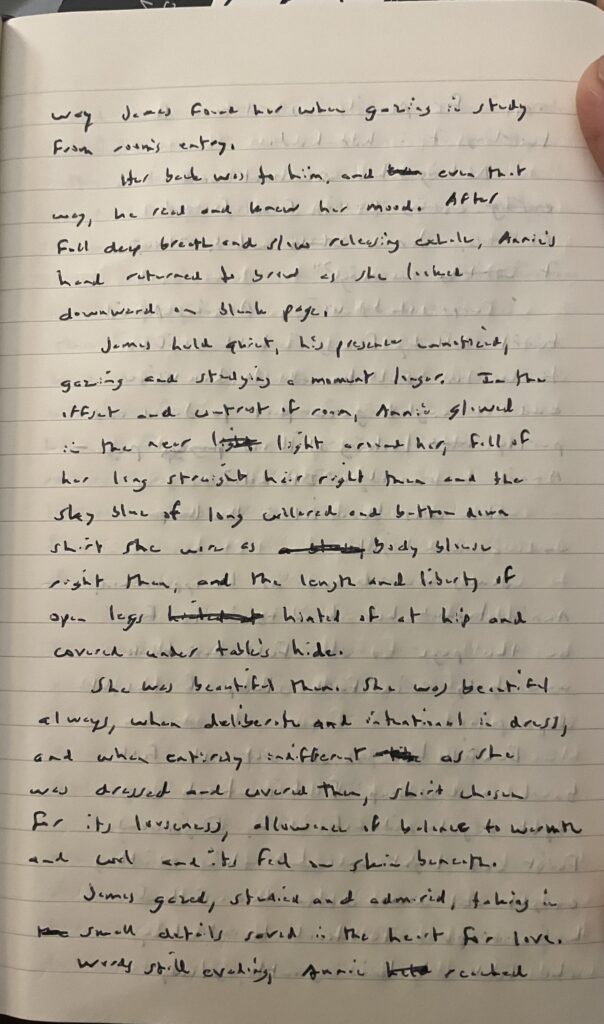 way James found her when gazing in study
from room's entry.
Her back was to him, and even that
way, he read and knew her mood. After
full deep breath and slow releasing exhale, Annie's
hand returned to brow as she looked
downward on blank page.
James held quiet, his presence unnoticed,
gazing and studying a moment longer. In the
offset and contrast of room, Annie glowed
in the near light around her, fall of
her long straight hair right then and the
sky blue of long collared and button down
shirt she wore as body blouse
right then, and the length and liberty of
open legs hinted of at hip and
covered under table's hide.
She was beautiful then. She was beautiful
always, when deliberate and intentional in dress,
and when entirely indifferent as she
was dressed and covered then, shirt chosen
for its looseness, allowance of balance to warmth
and cool and its feel on skin beneath.
James gazed, studied and admired, taking in
small details saved in the heart for love.
Words still evading, Annie reached